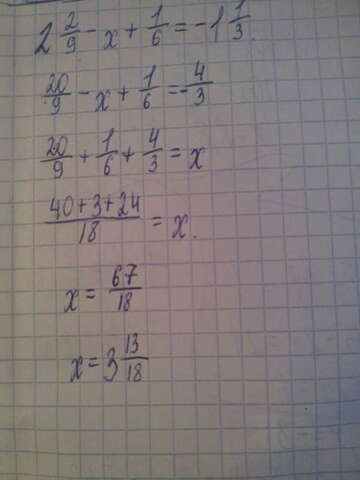 2 2/9 - x + 1/6 = -1 1/3.
20/9 - x + 1/6 = -4/3
20/9 + 1/6 + 4/3 = x
(40+3+24)/18 = x.
x = 67/18
x = 3 13/18